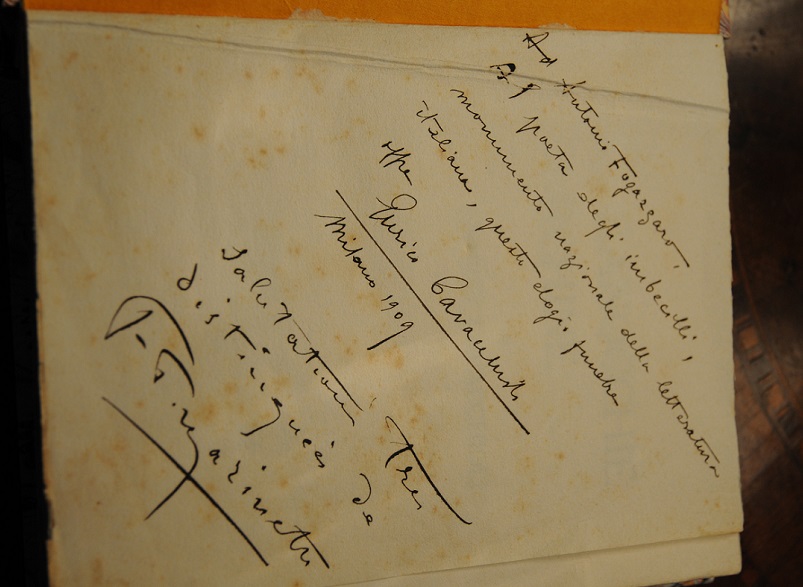 Ad Antonio Fogazzaro,
Al poeta degli imbecilli,
monumento nazionale della letteratura
italiana, questo elogio funebre
offre
Enrico Cavacchioli
Milano 1909
Salutations très
distinguées de
F. T. Marinetti